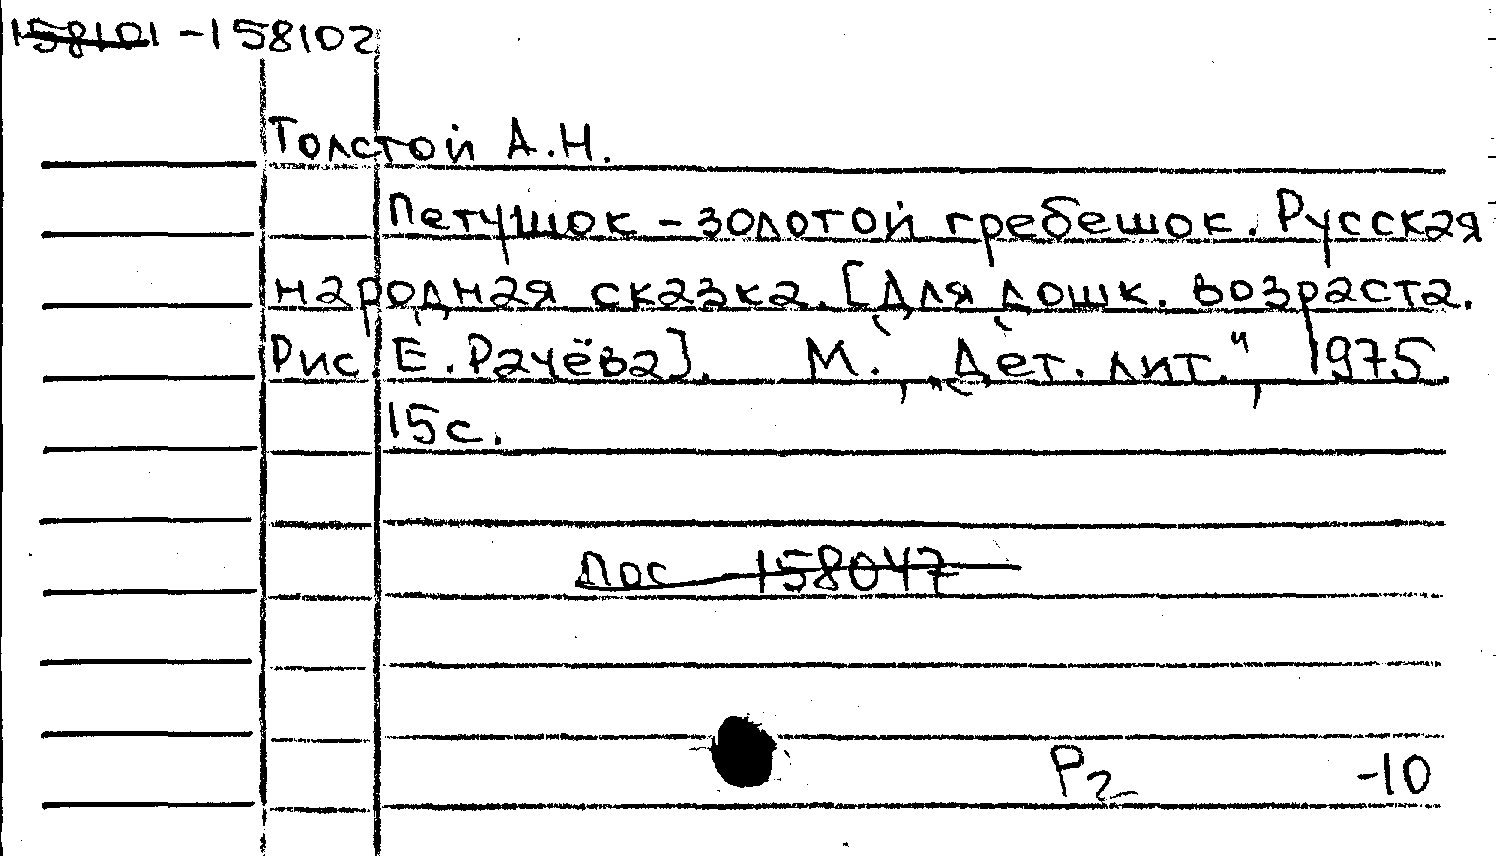 158101 - 158102
Толстой А.Н.
Петушок - золотой гребешок. Русская
народная сказка. [Для дошк. возраста.
Рис. Е. Рачёва]. М., „Дет. лит.“, 1975.
15 с.
158047
Р2 -10